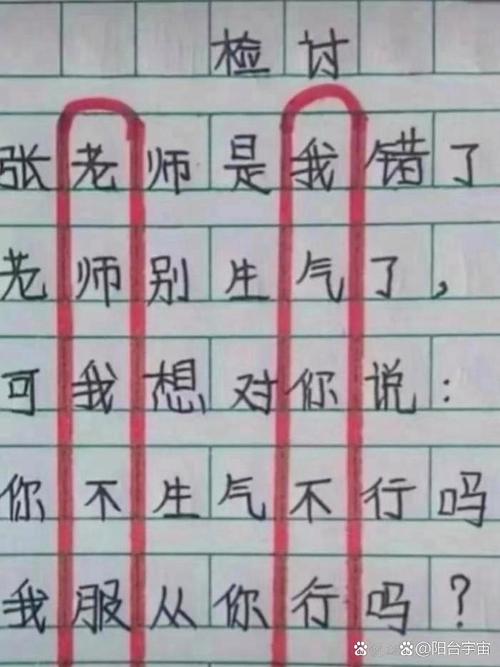 检讨
张老师是我错了
老师别生气了，
可我想对你说：
你不生气不行吗
我服从你行吗？
@阳台宇宙